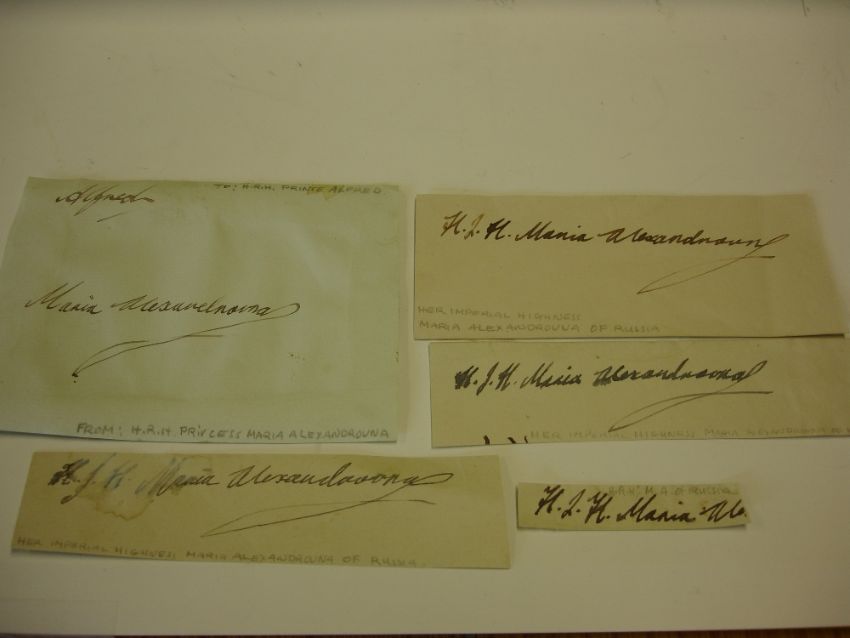 Alfred
TO: H.R.H. PRINCE ALFRED
Maria Alexandrovna
FROM: H.R.H PRINCESS MARIA ALEXANDROUNA
H. I. H. Maria Alexandrovna
HER IMPERIAL HIGHNESS
MARIA ALEXANDROUNA OF RUSSIA
H. I. H. Maria Alexandrovna
HER IMPERIAL HIGHNESS MARIA ALEXANDROUNA
H. I. H. Maria Alexandrovna
HER IMPERIAL HIGHNESS MARIA ALEXANDROUNA OF RUSSIA.
H.R.H. M.A. OF RUSSIA
H. I. H. Maria Ale